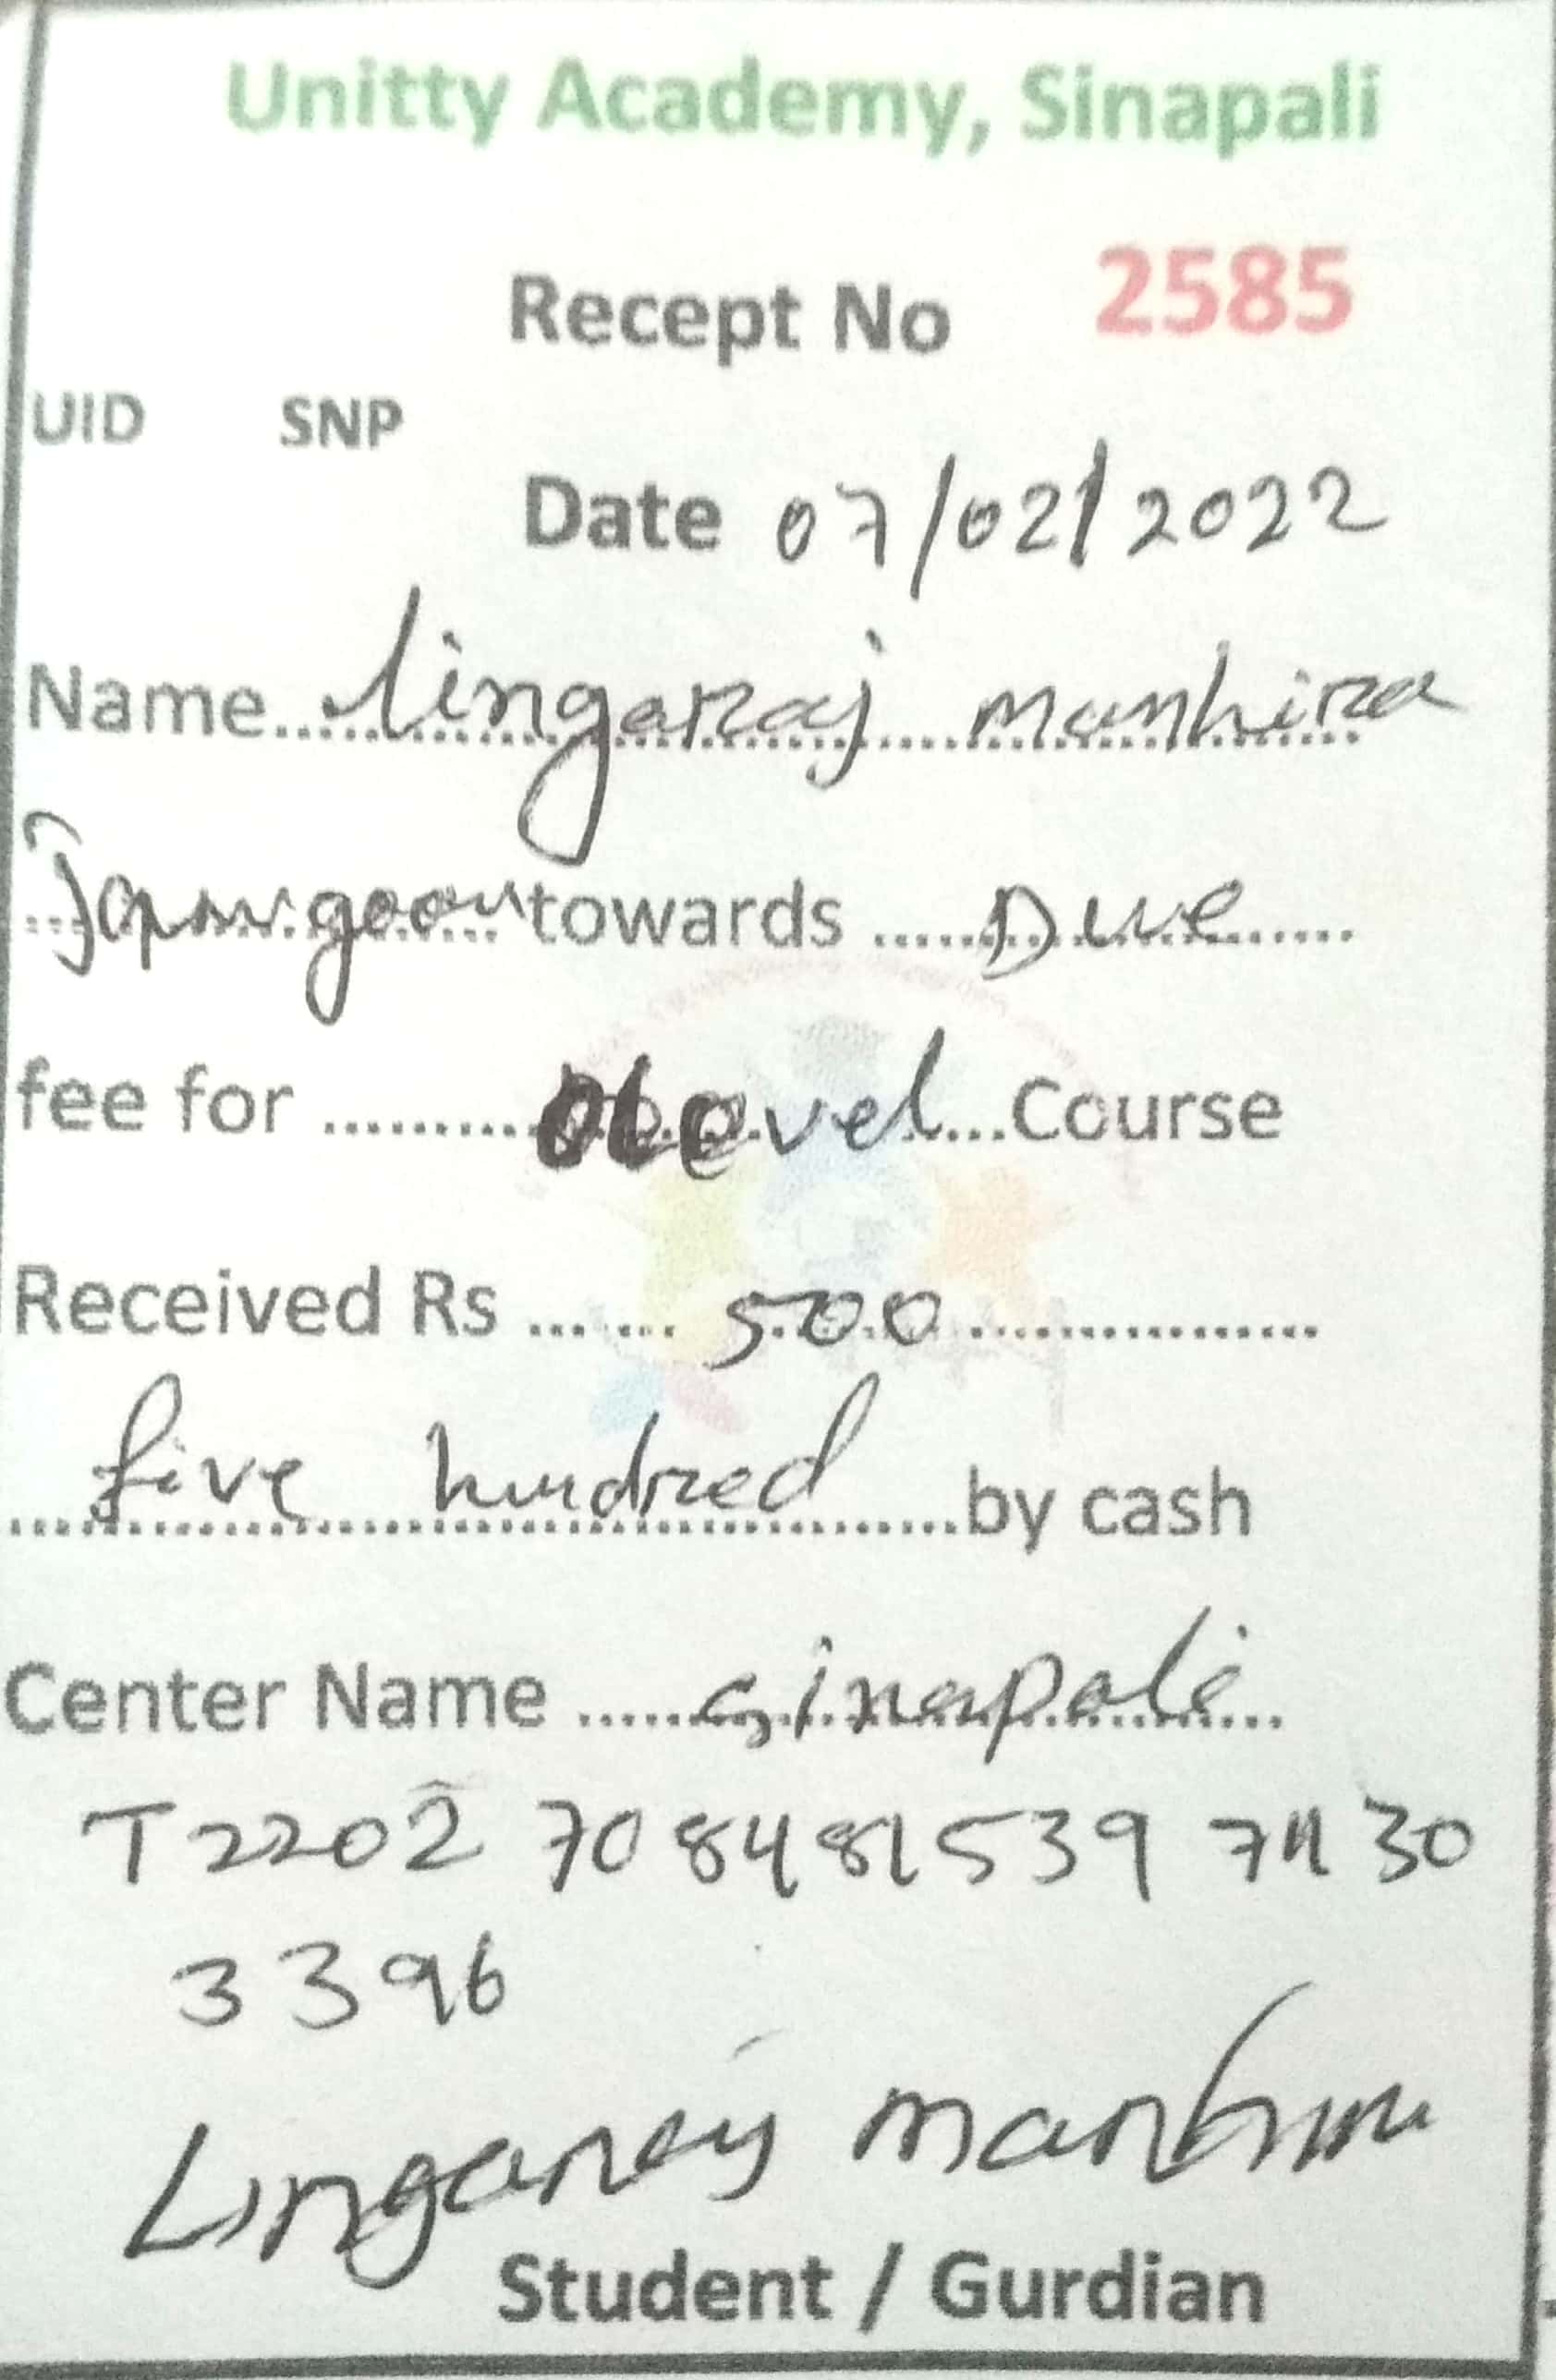 Unitty Academy, Sinapali
Recept No 2585
UID SNP
Date 07/02/2022
Name lingaraj manhira
towards Due
fee for Olevel Course
Received Rs 500
five hundred by cash
Center Name sinapali
T2202 70848153971130
3396
Lingaraj
Student / Gurdian